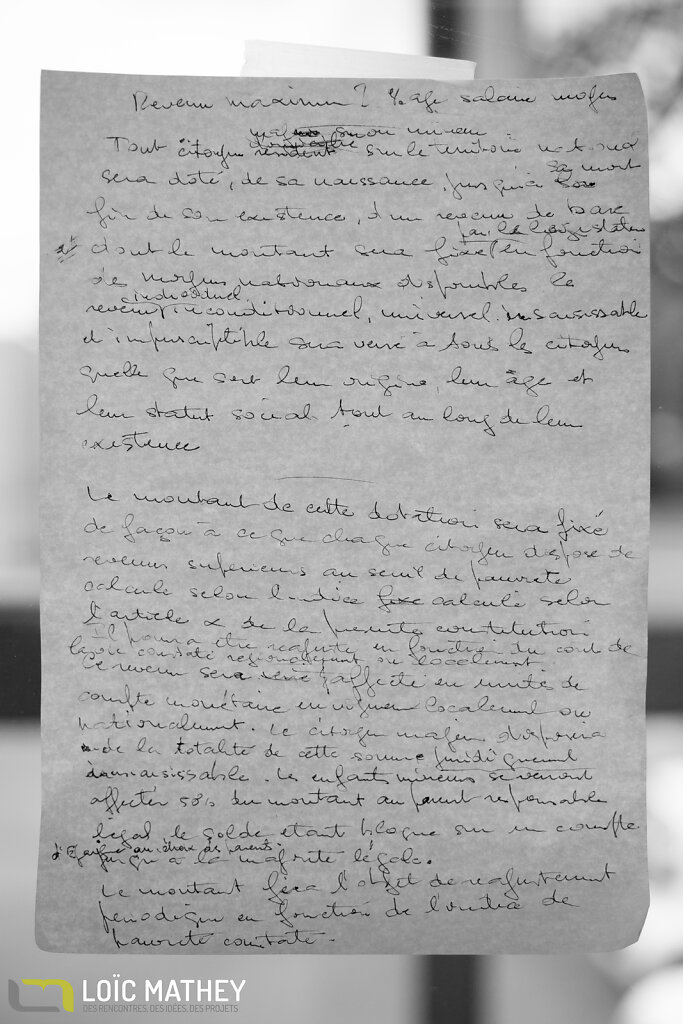 Revenu maximum ? %age salaire moyen
majeur ou mineur
Tout citoyen résident sur le territoire national
sera doté, de sa naissance, jusqu'à sa mort
fin de son existence, d'un revenu de base
par le législateur
dont le montant sera fixé en fonction
des moyens nationaux disponibles le
individuel
revenu inconditionnel, universel insaisissable
et imprescriptible sera versé à tous les citoyens
quelle que soit leur origine, leur âge et
leur statut social tout au long de leur
existence
Le montant de cette dotation sera fixé
de façon à ce que chaque citoyen dispose de
revenus supérieurs au seuil de pauvreté
calculé selon l'indice fixé calculé selon
l'article x de la présente constitution
Il pourra être réajusté en fonction du coût de
la vie constaté régionalement ou localement.
Ce revenu sera affecté en unités de
compte monétaire en vigueur localement ou
nationalement. Le citoyen majeur disposera
de la totalité de cette somme juridiquement
insaisissable. Les enfants mineurs se verront
affecter 50% du montant au parent responsable
légal le solde étant bloqué sur un compte
d'épargne au choix des parents
jusqu'à la majorité légale.
Le montant fera l'objet de réajustement
périodique en fonction de l'indice de
pauvreté constaté.
LOÏC MATHEY
DES RENCONTRES, DES IDÉES, DES PROJETS